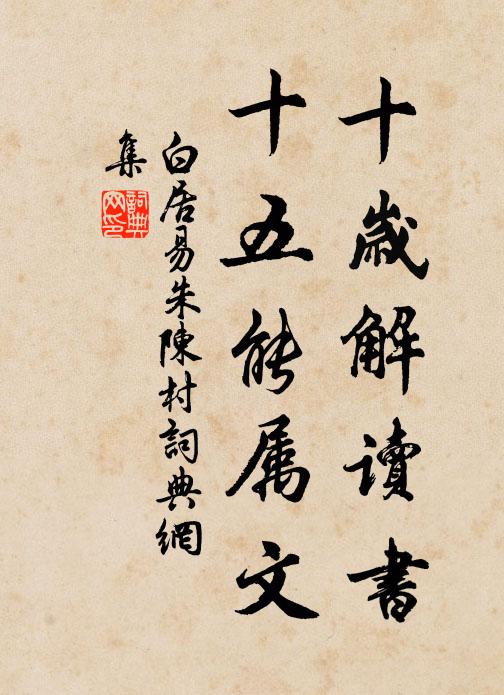 十歲解讀書
十五能属文
白居易朱陳村詞典網
集
詞典
网印